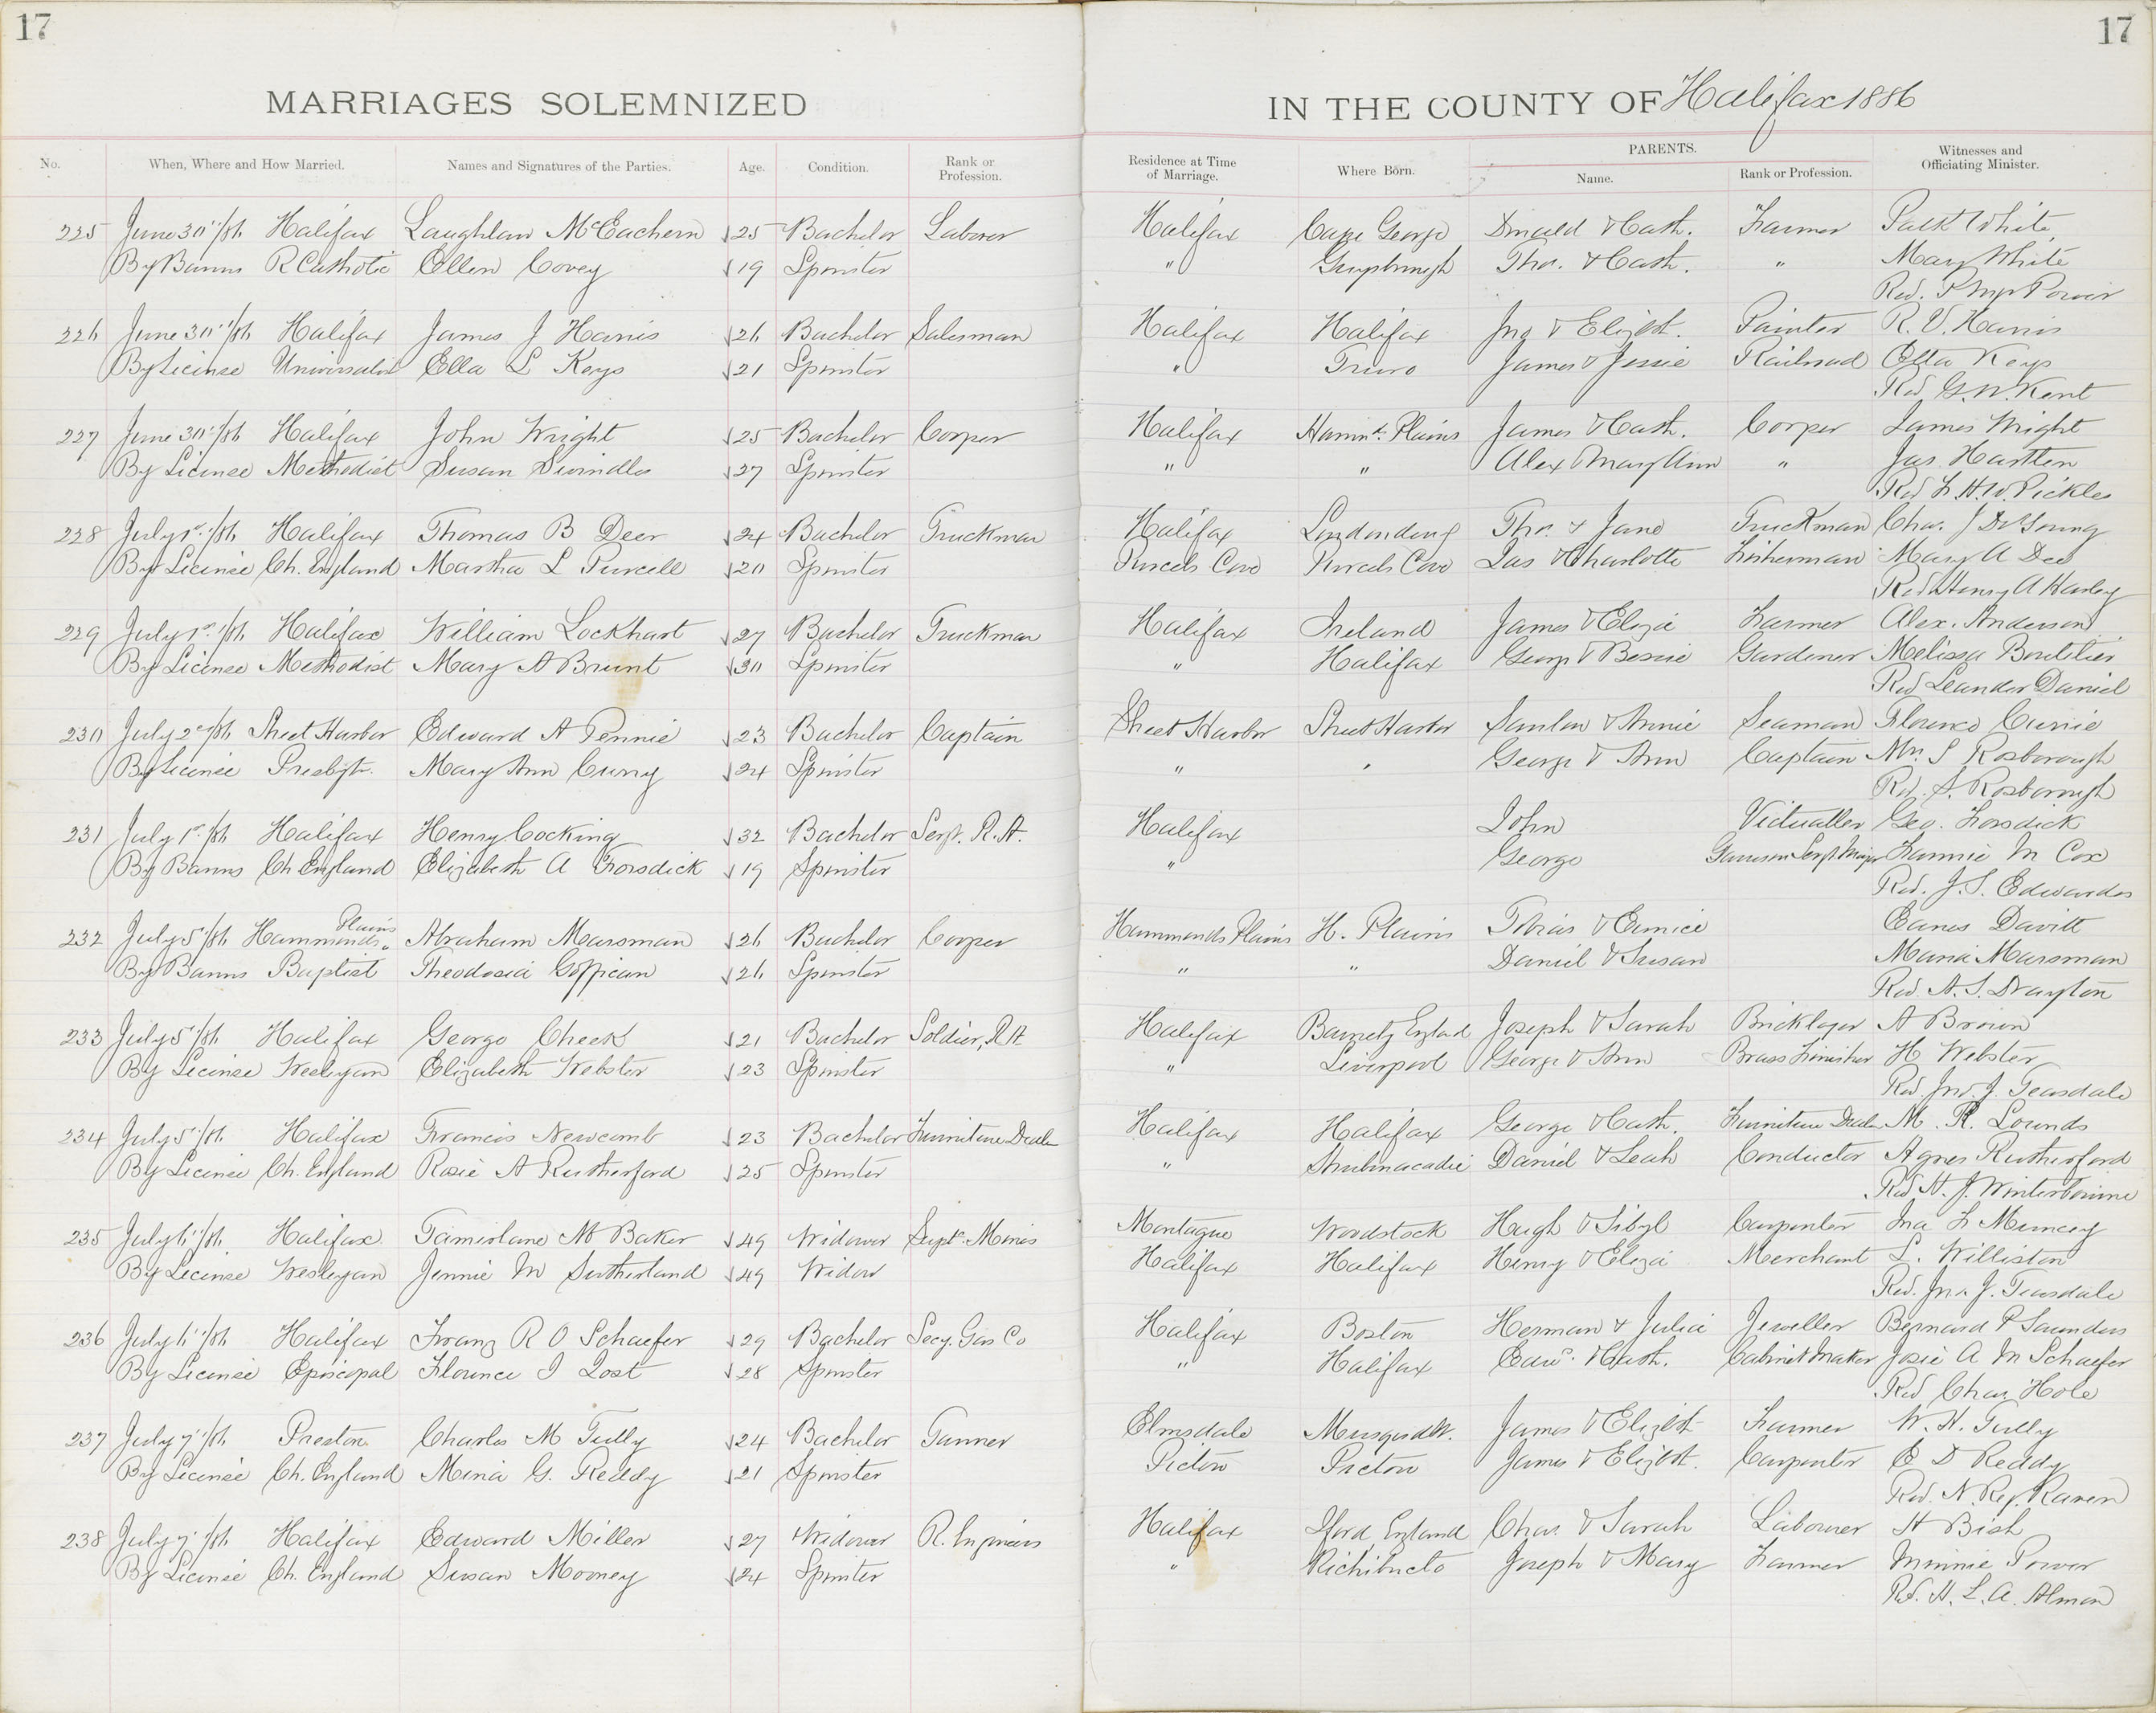 17
17
MARRIAGES SOLEMNIZED
IN THE COUNTY OF Halifax 1886
No. When, Where and How Married. Names and Signatures of the Parties. Age. Condition. Rank or Profession. Residence at Time of Marriage. Where Born. PARENTS. Name. Rank or Profession. Witnesses and Officiating Minister.
225 June 30th/86 Halifax Laughlan McEachern 25 Bachelor Laborer Halifax Cape George Donald & Cath. Farmer Patk White
By Banns R Catholic Ellen Covey 19 Spinster " Guysbrough Thos. & Cath. " Mary White
Rev. Power
226 June 30th/86 Halifax James J Harris 26 Bachelor Salesman Halifax Halifax Jno & Elizbt. Painter R. V. Harris
By License Universalist Ella L Keys 21 Spinster " Truro James & Jessie Railroad Etta Keys
Revd G. W. Kent
227 June 30th/86 Halifax John Wright 25 Bachelor Cooper Halifax Hammds. Plains James & Cath. Cooper James Wright
By License Methodist Susan Swindles 27 Spinster " " Alex & Mary Ann " Jas Hartlen
Revd F. H. W. Pickles
228 July 1st/86 Halifax Thomas B Deer 24 Bachelor Truckman Halifax Londonderry Thos. & Jane Truckman Chas. J DeYoung
By License Ch. England Martha L Purcell 20 Spinster Purcels Cove Purcels Cove Jas & Charlotte Fisherman Mary A Dee
Revd Henry A Harley
229 July 1st/86 Halifax William Lockhart 27 Bachelor Truckman Halifax Ireland James & Eliza Farmer Alex. Anderson
By License Methodist Mary A Brunt 30 Spinster " Halifax George & Bessie Gardener Melissa Boutilier
Revd Leander Daniel
230 July 2nd/86 Sheet Harbor Edward A Pennie 23 Bachelor Captain Sheet Harbor Sheet Harbor & Annie Seaman Florence Currie
By License Presbytr. Mary Ann Curry 24 Spinster " " George & Ann Captain Mrs. S Rosborough
Rev. S. Rosborough
231 July 1st/86 Halifax Henry Cocking 32 Bachelor Sergt. R. A. Halifax John Victualler Geo. Forsdick
By Banns Ch England Elizabeth A Forsdick 19 Spinster " George Garrison Sergt. Major Fannie M Cox
Rev. J. S. Edwardes
232 July 5th/86 Hammonds Plains Abraham Marsman 26 Bachelor Cooper Hammonds Plains H. Plains Tobias & Eunice Davitt
By Banns Baptist Theodosia 26 Spinster " " Daniel & Susan Maria Marsman
Rev. A. S. Drayton
233 July 5th/86 Halifax George Cheek 21 Bachelor Soldier, R A Halifax England Joseph & Sarah Bricklayer A Brown
By License Wesleyan Elizabeth Webster 23 Spinster " Liverpool George & Ann Brass Finisher H Webster
Revd Jno. J. Teasdale
234 July 5th/86 Halifax Francis Newcomb 23 Bachelor Furniture Dealer Halifax Halifax George & Cath. Furniture Dealer M. R. Lownds
By License Ch. England Rosie A Rutherford 25 Spinster " Shubenacadie Daniel & Leah Conductor Agnes Rutherford
Revd H. J. Winterbourne
235 July 6th/86 Halifax Tamerlane M Baker 49 Widower Supt. Mines Montague Woodstock Hugh & Sibyl Carpenter F Muncey
By License Wesleyan Jennie M Sutherland 49 Widow Halifax Halifax Henry & Eliza Merchant L. Williston
Rev. Jno. J. Teasdale
236 July 6th/86 Halifax Franz R O Schaefer 29 Bachelor Secy. Gas Co Halifax Boston Herman & Julia Jeweller Bernard P Saunders
By License Episcopal Florence I Yost 28 Spinster " Halifax Edwd. & Cath. Cabinet Maker Josie A M Schaefer
Revd Chas. Hole
237 July 7th/86 Preston Charles M Tully 24 Bachelor Tanner Elmsdale Musquodt. James & Elizbt. Farmer W. H. Tully
By License Ch. England Mina G. Reddy 21 Spinster Pictou Pictou James & Elizbt. Carpenter E D Reddy
Rev. N. Reg. Raven
238 July 7th/86 Halifax Edward Miller 27 Widower R. Engineers Halifax Iford England Chas. & Sarah Labourer H Bish
By License Ch. England Susan Mooney 24 Spinster " Richibucto Joseph & Mary Farmer Minnie Power
Rev. H. L. A. Almon